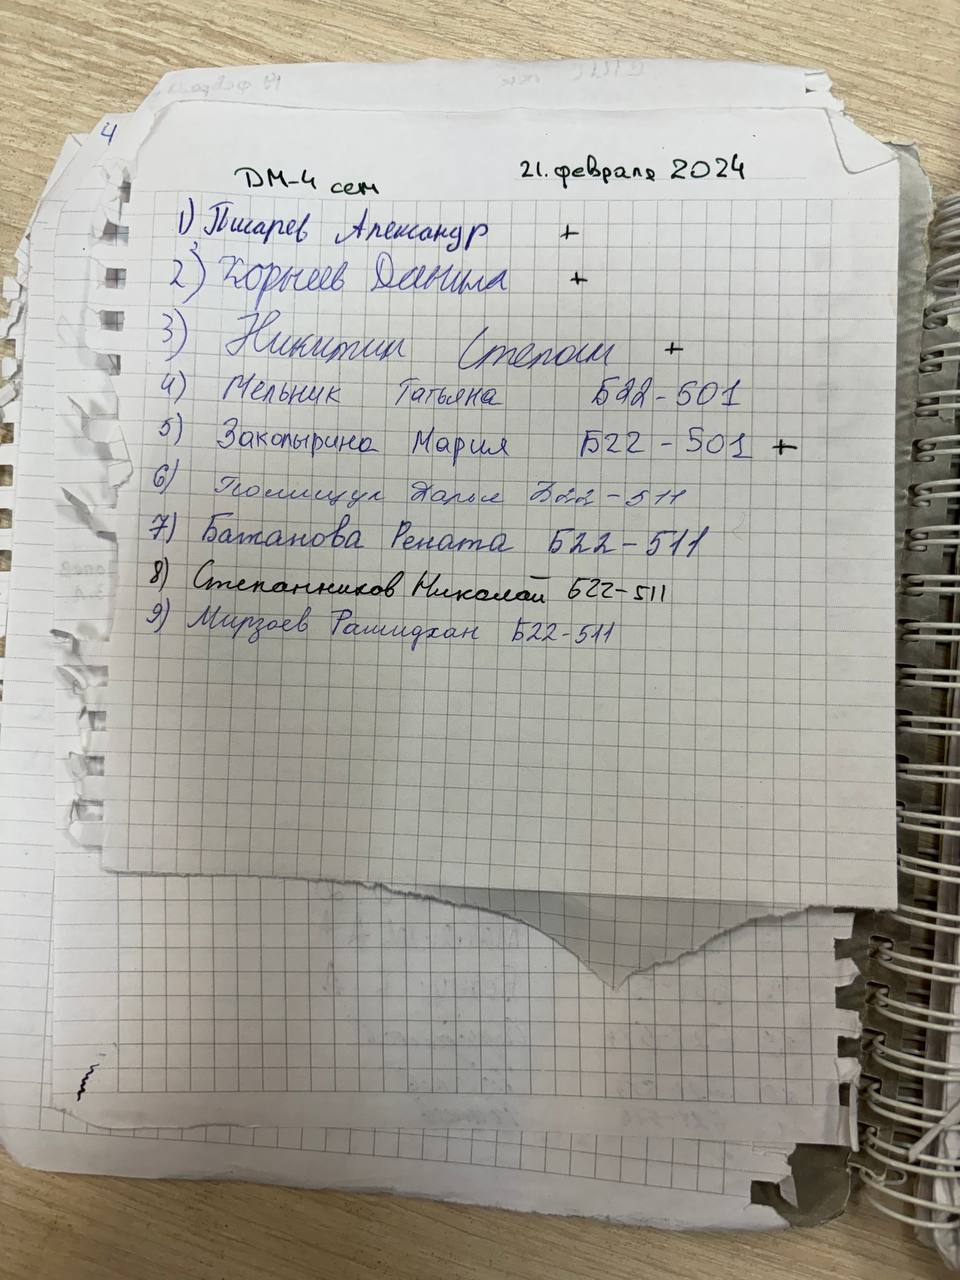 ДМ-4 сем 21. февраля 2024
1) Писарев Александр +
2) Данила +
3) Никитин Степан +
4) Мельник Татьяна Б22-501
5) Закопырина Мария Б22-501 +
6) Полищук Дарья Б22-511
7) Бажанова Рената Б22-511
8) Степанников Николай Б22-511
9) Мирзоев Рашиджан Б22-511
4